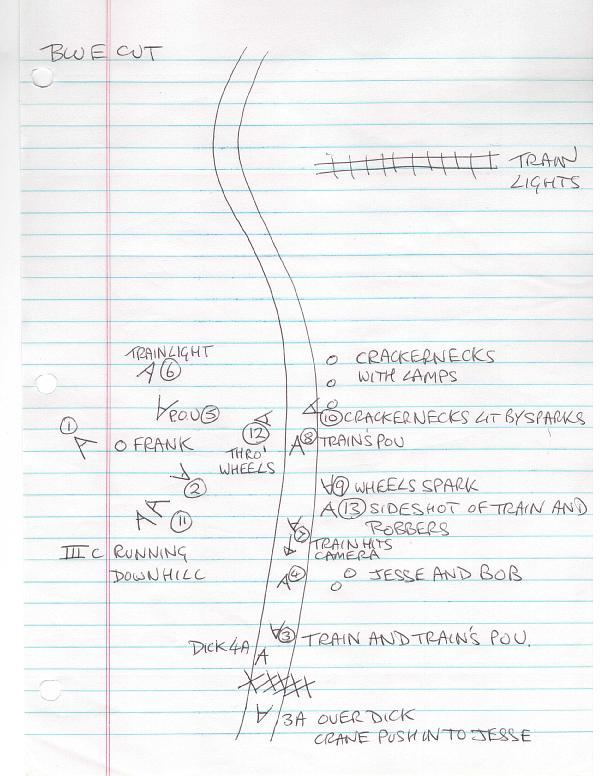 BLUE CUT
TRAIN
LIGHTS
TRAINLIGHT
6
CRACKERNECKS
WITH LAMPS
P.O.V 5
1
10 CRACKERNECKS LIT BY SPARKS
FRANK
12
THRO'
WHEELS
8 TRAIN'S POV
2
9 WHEELS SPARK
13 SIDESHOT OF TRAIN AND
ROBBERS
11
7
TRAIN HITS
CAMERA
III C RUNNING
DOWNHILL
4
JESSE AND BOB
3 TRAIN AND TRAIN'S POV.
DICK 4A
3A OVER DICK
CRANE PUSH IN TO JESSE